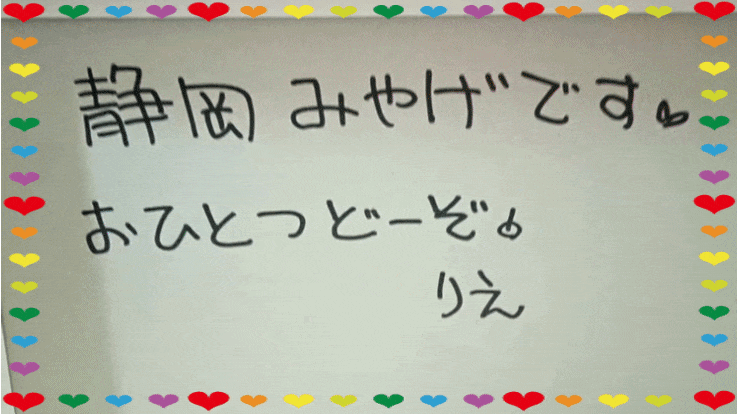 静岡みやげです♡
おひとつどーぞ♪
りえ